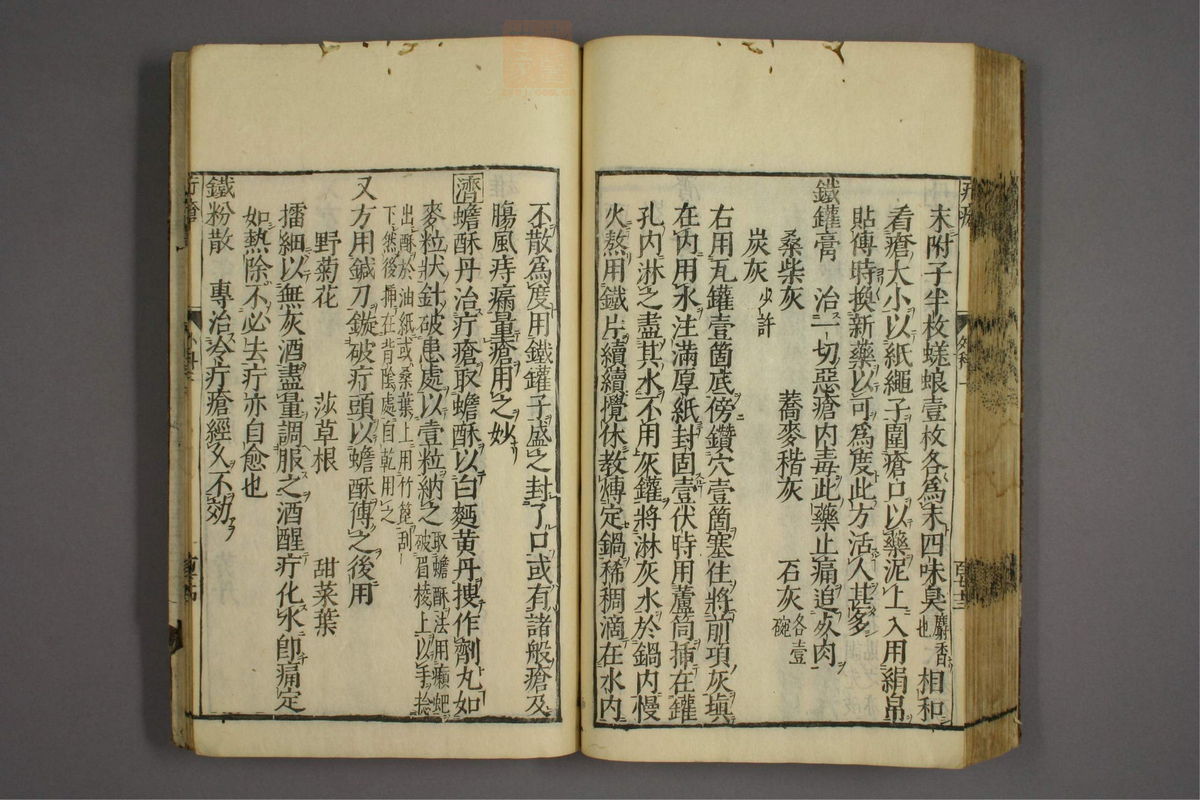 末附子半枚蜣蜋壹枚各爲末四味臭麝香也相和
看瘡大小以紙繩子圍瘡口以藥泥上入用絹帛
貼傅時換新藥以可爲度此方活人甚多
鐵鑵膏　治一切惡瘡内毒此藥止痛追
桑柴灰　蕎麥稭灰　石灰各壹碗
炭灰少許
右用瓦鑵壹箇底傍鑽穴壹箇塞住將前項灰塡
在内用水注滿厚紙封固壹伏時用蘆筒揷在鑵
孔内淋之盡其水不用灰鑵將淋灰水於鍋内慢
火熬用鐵片續續攪休教煿定鍋稀稠滴在水内
不散爲度用鐵鑵子盛之封了口或有諸般瘡及
腸風痔瘺量瘡用之妙
濟蟾酥丹治疔瘡取蟾酥以白麪黄丹搜作劑丸如
麥粒狀針破患處以壹粒納之取蟾酥法用癩蚆破眉稜上以手捻
出酥於油紙或桑葉上用竹篦刮下然後揷在背陰處自乾用之
又方用鍼刀鏇破疔頭以蟾酥傅之後用
野菊花　莎草根　甜菜葉
擂細以無灰酒盡量調服之酒醒疔化水卽痛定
如熱除不必去疔亦自愈也
鐵粉散　專治冷疔瘡經久不効